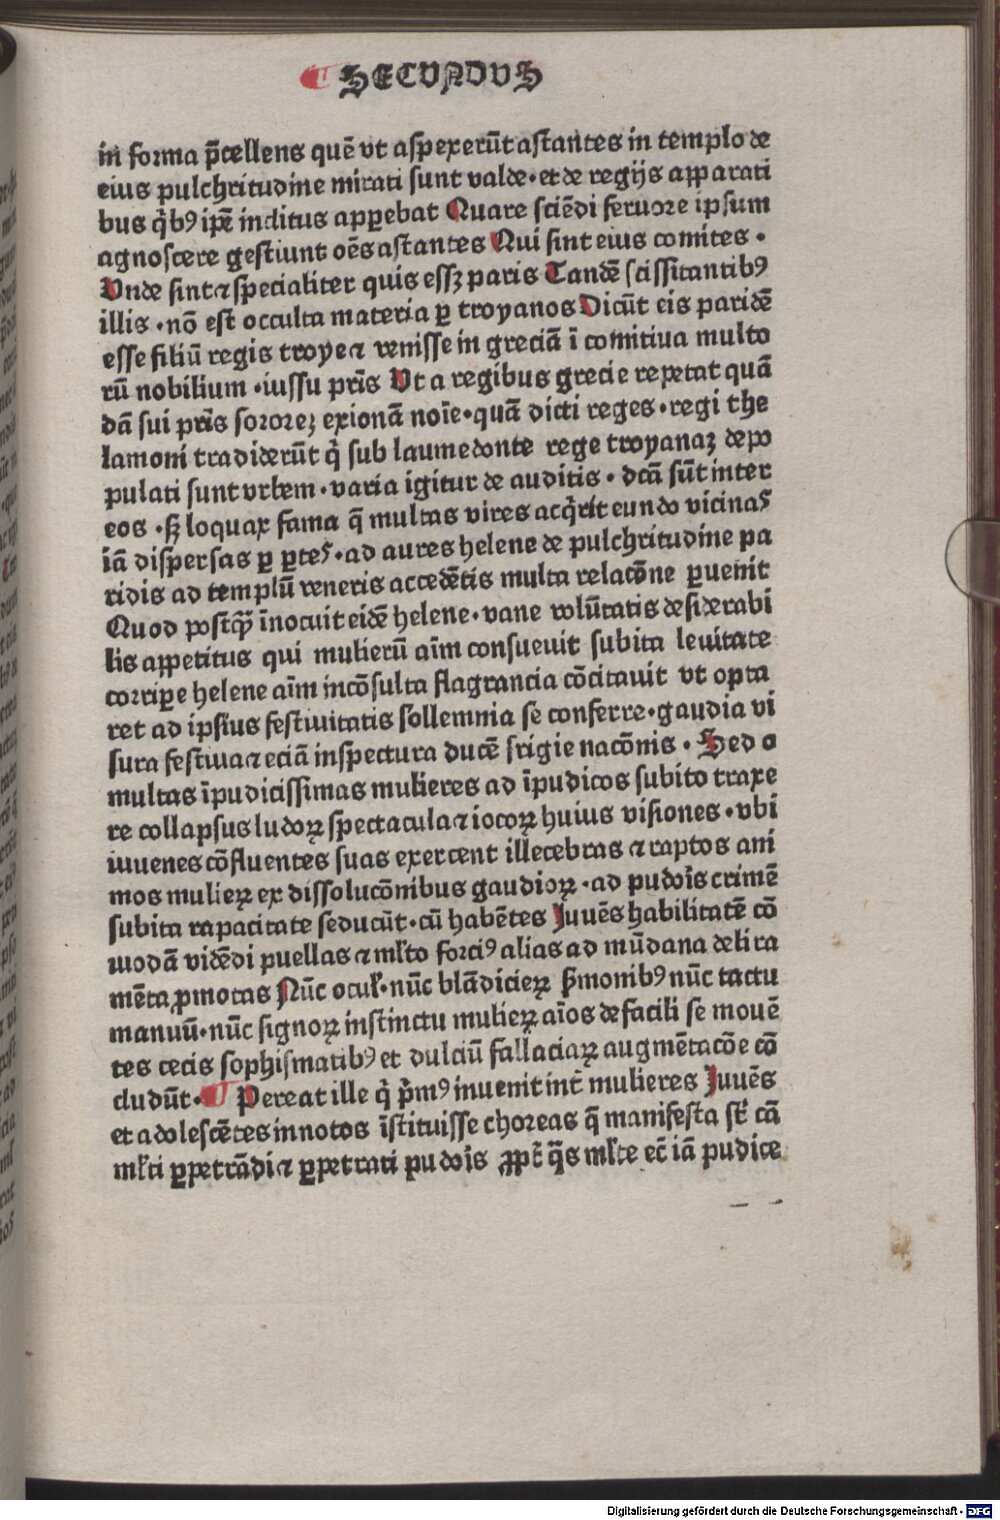 ¶ SECVNDVS
in forma p̄cellens quē vt aſpexerūt aſtantes in templo de
eius pulchritudine mirati ſunt valde · et de regijs apparati
bus q̇bꝰ ip̄e inclitus apꝑebat Quare ſciēdi feruore ipſum
agnoſcere geſtiunt oēs aſtantes Qui ſint eius comites ·
Unde ſint ⁊ ſpecialiter quis eſſꝫ paris Tandē ſciſſitantibꝰ
illis · nō eſt occulta materia ꝑ troyanos Dicūt eis paridē
eſſe filiū regis troye ⁊ veniſſe in greciā ī comitiua multo
rū nobilium · iuſſu pr̄is Ut a regibus grecie repetat quā
dā ſui pr̄is ſororeꝫ exionā noīe · quā dicti reges · regi the
lamoni tradiderūt q̇ ſub laumedonte rege troyanaꝫ depo
pulati ſunt vrbem · varia igitur de auditis · dc̄a ſūt inter
eos · ſꝫ loquax fama q̄ multas vires acq̇rit eundo vicinaſ
iā diſperſas ꝑ ꝑteſ · ad aures helene de pulchritudine pa
ridis ad templū veneris accedētis multa relacōne ꝑuenit
Quod poſtꝙ̄ īnotuit eidē helene · vane volūtatis deſiderabi
lis appetitus qui mulierū aīm conſueuit ſubita leuitate
corripe helene aīm incōſulta flagrancia cōcitauit vt opta
ret ad ipſius feſtiuitatis ſollemnia ſe conferre · gaudia vi
ſura feſtiua ⁊ eciā inſpectura ducē frigie nacōnis · Sed o
multas īpudiciſſimas mulieres ad īpudicos ſubito traxe
re collapſus ludoꝝ ſpectacula ⁊ iocoꝝ huius viſiones · vbi
iuuenes cōfluentes ſuas exercent illecebras ⁊ raptos ani
mos mulieꝝ ex diſſolucōnibus gaudioꝝ · ad pudoīs crimē
ſubita rapacitate ſeducūt · cū habētes Juuēs habilitatē cō
modā vidēdi puellas ⁊ ml̄to forciꝰ alias ad mūdana delira
mēta ꝓmotas Nūc ocul̄ · nūc blādicieꝝ ẜmonibꝰ nūc tactu
manuū · nūc ſignoꝝ inſtinctu mulieꝝ aīos de facili ſe mouē
tes cecis ſophiſmatibꝰ et dulciū fallaciaꝝ augmētacōe cō
cludūt · ¶ Pereat ille q̇ p̄mꝰ inuenit int̄ mulieres Juuēs
et adoleſcētes innotos īſtituiſſe choreas q̄ manifeſta ſt̄ cā
ml̄ti ꝑpetrādi ⁊ ꝑpetrati pudoīs ꝓpt̄ q̄s ml̄te ec̄ iā pudice
Digitalisierung gefördert durch die Deutsche Forschungsgemeinschaft - DFG